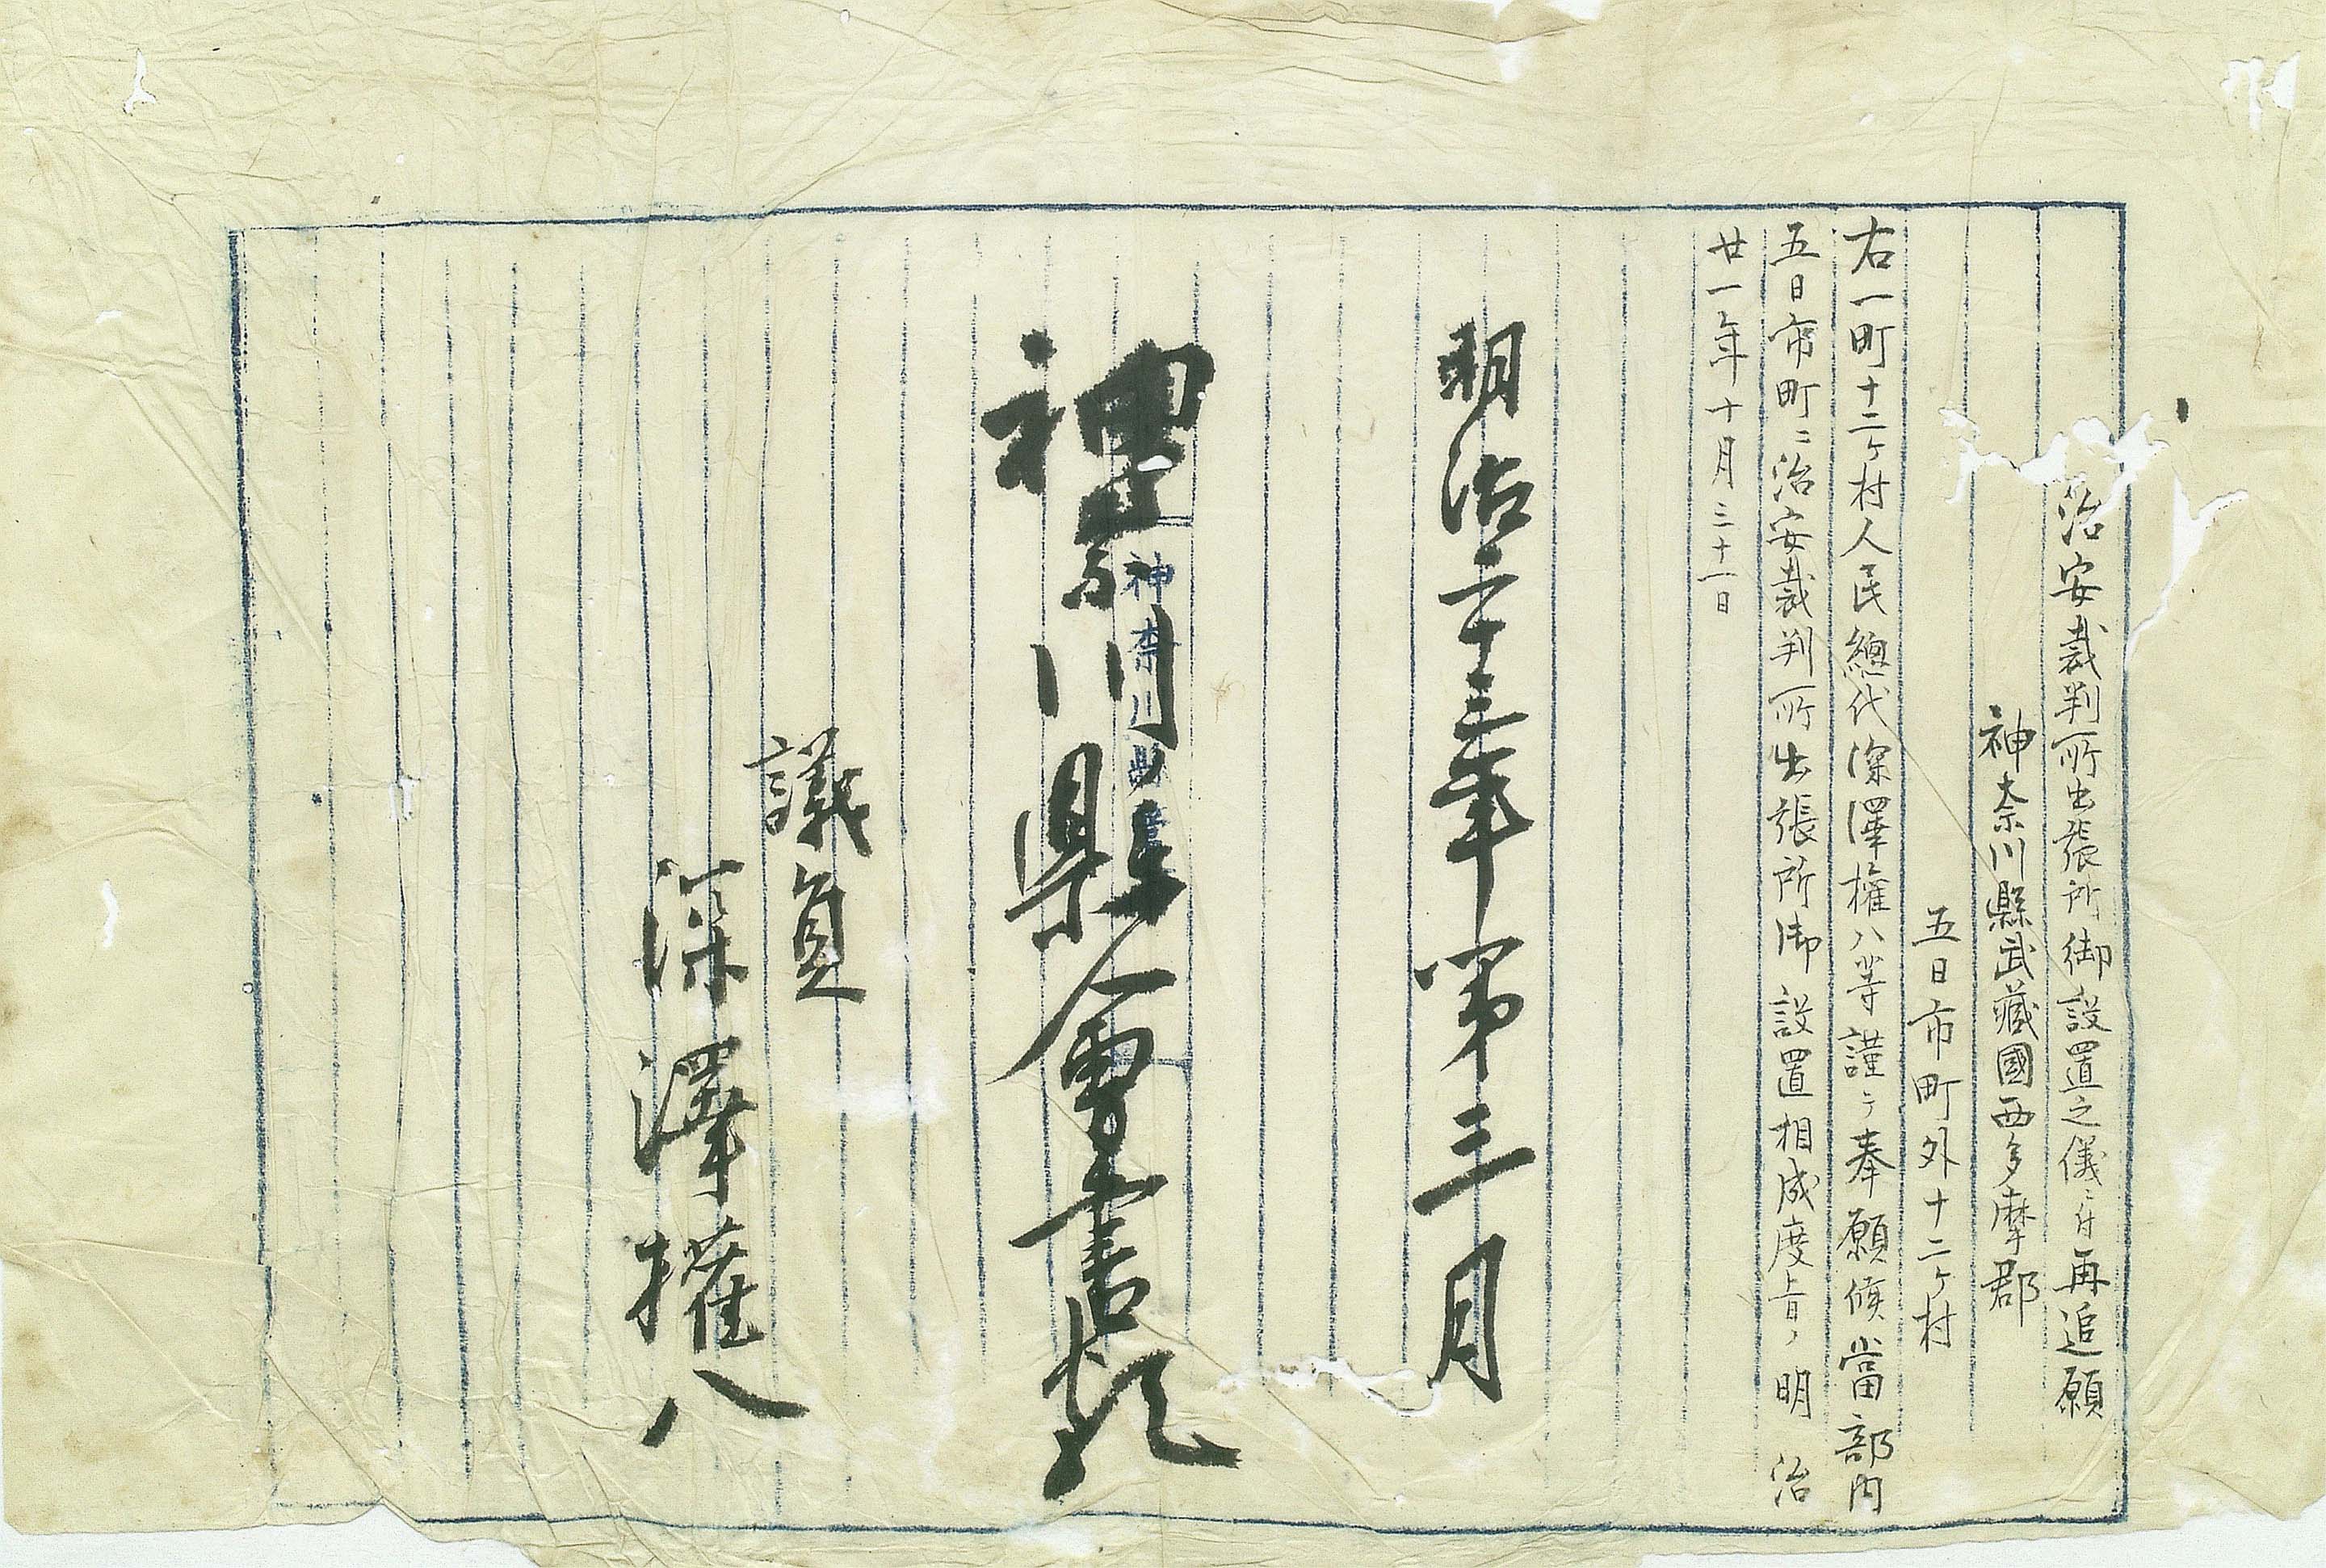 治安裁判所出張所御設置之儀ニ付再追願
神奈川縣武藏國西多摩郡
五日市町外十二ヶ村
右一町十二ヶ村人民總代深澤権八等謹テ奉願候當部内
五日市町ニ治安裁判所出張所御設置相成度旨ノ明治
廿一年十月三十一日
明治二十三年第三月
神奈川縣會書類
神奈川縣
議員
深澤権八